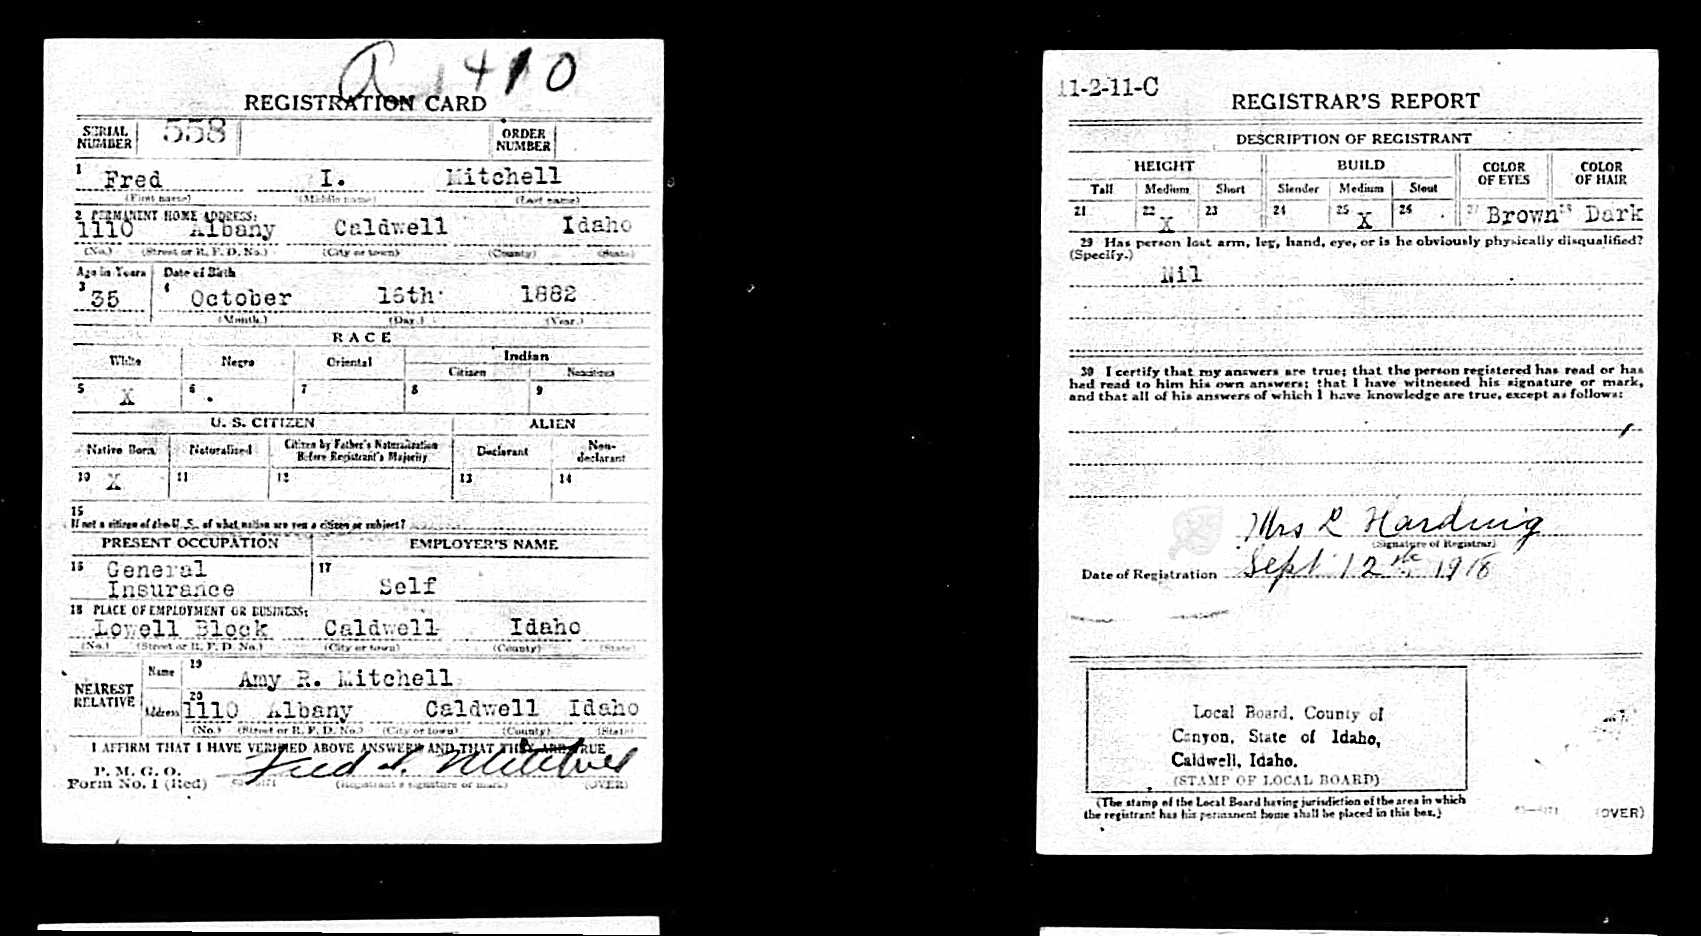 A 1410
REGISTRATION CARD
SERIAL NUMBER 558 ORDER NUMBER
1 Fred I. Mitchell
(First name) (Middle name) (Last name)
2 PERMANENT HOME ADDRESS:
1110 Albany Caldwell Idaho
(No.) (Street or R. F. D. No.) (City or town) (County) (State)
Age in Years Date of Birth
3 35 4 October 16th 1882
(Month.) (Day.) (Year.)
RACE
White Negro Oriental Indian
Citizen Noncitizen
5 X 6 7 8 9
U. S. CITIZEN ALIEN
Native Born Naturalized Citizen by Father's Naturalization Before Registrant's Majority Declarant Non-declarant
10 X 11 12 13 14
15
If not a citizen of the U. S., of what nation are you a citizen or subject?
PRESENT OCCUPATION EMPLOYER'S NAME
16 General Insurance 17 Self
18 PLACE OF EMPLOYMENT OR BUSINESS:
Lowell Block Caldwell Idaho
(No.) (Street or R. F. D. No.) (City or town) (County) (State)
NEAREST RELATIVE Name 19 Amy R. Mitchell
Address 20 1110 Albany Caldwell Idaho
(No.) (Street or R. F. D. No.) (City or town) (County) (State)
I AFFIRM THAT I HAVE VERIFIED ABOVE ANSWERS AND THAT THEY ARE TRUE
P. M. G. O.
Form No. 1 (Red) Fred I. Mitchell
(Registrant's signature or mark) (OVER)
11-2-11-C
REGISTRAR'S REPORT
DESCRIPTION OF REGISTRANT
HEIGHT BUILD COLOR OF EYES COLOR OF HAIR
Tall Medium Short Slender Medium Stout
21 22 X 23 24 25 X 26 27 Brown 28 Dark
29 Has person lost arm, leg, hand, eye, or is he obviously physically disqualified?
(Specify.)
Nil
30 I certify that my answers are true; that the person registered has read or has
had read to him his own answers; that I have witnessed his signature or mark,
and that all of his answers of which I have knowledge are true, except as follows:
Mrs R Harding
(Signature of Registrar)
Date of Registration Sept 12th 1918
Local Board, County of
Canyon, State of Idaho,
Caldwell, Idaho.
(STAMP OF LOCAL BOARD)
(The stamp of the Local Board having jurisdiction of the area in which
the registrant has his permanent home shall be placed in this box.)
(OVER)